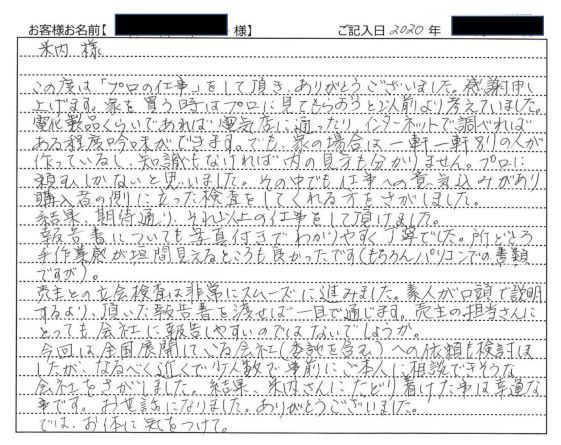 お客様お名前【 様】 ご記入日 2020 年
米内 様
この度は「プロの仕事」をして頂き、ありがとうございました。感謝申し
上げます。家を買う時はプロに見てもらおうと以前より考えていました。
電化製品くらいであれば電気店に通ったり、インターネットで調べれば
ある程度吟味ができます。でも、家の場合は一軒一軒別の人が
作っているし、知識もなければ内の見方も分かりません。プロに
頼むしかないと思いました。その中でも仕事への意気込みがあり
購入者の側に立った検査をしてくれる方をさがしました。
結果、期待通り、それ以上の仕事をして頂けました。
報告書についても写真付きでわかりやすく丁寧でした。所どころ
手作業感が垣間見えるところも良かったです(もちろんパソコンでの書類
ですが)。
売主との立会検査は非常にスムーズに進みました。素人が口頭で説明
するより、頂いた報告書を渡せば一目で通じます。売主の担当さんに
とっても会社に報告しやすいのではないでしょうか。
今回は全国展開している会社(委託を含む)への依頼も検討は
したが、なるべく近くで少人数で事前にご本人に相談できそうな
会社をさがしました。結果、米内さんにたどり着けた事は幸運な
事です。お世話になりました。ありがとうございました。
では、お体に気をつけて。